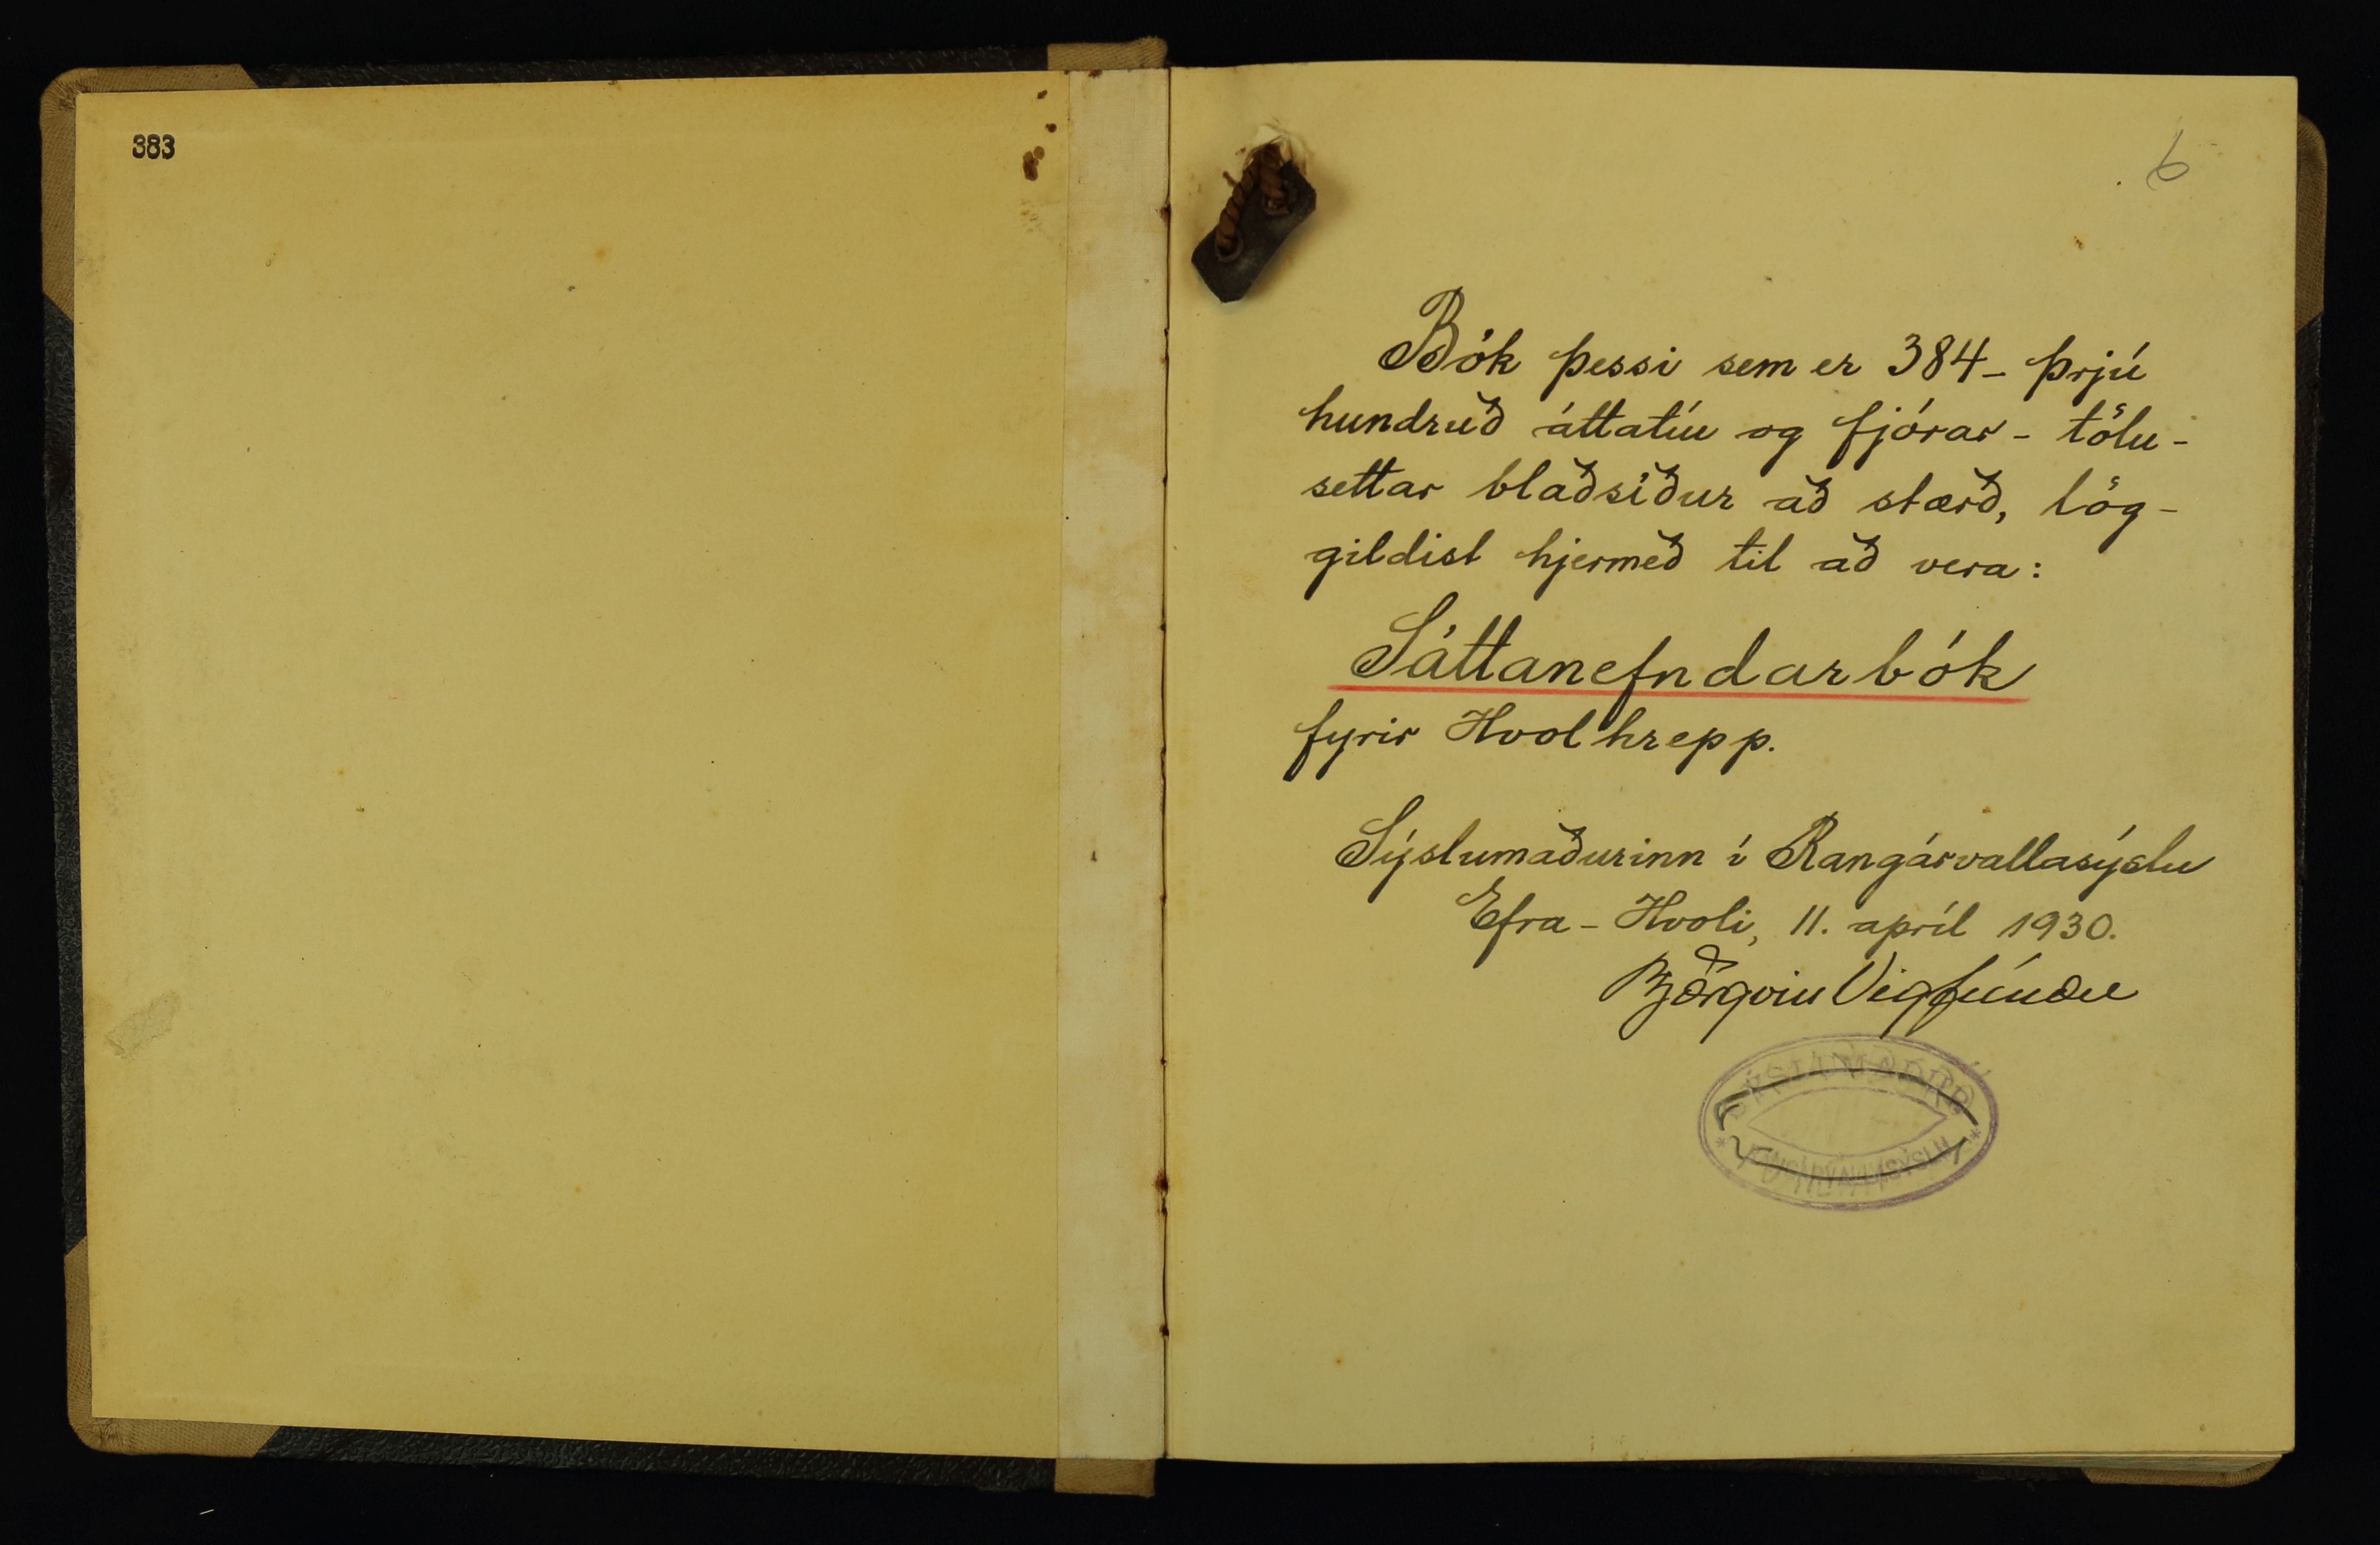 383
6
Bók þessi sem er 384 - þrjú
hundruð áttatíu og fjórar - tölu-
settar blaðsíður að stærð, lög-
gildist hjermeð til að vera:
Sáttanefndarbók
fyrir Hvolhrepp.
Sýslumaðurinn í Rangárvallasýslu
Efra-Hvoli, 11. apríl 1930.
Björgvin Vigfússon
SÝSLUMAÐUR
* RANGÁRVALLASÝSLU *